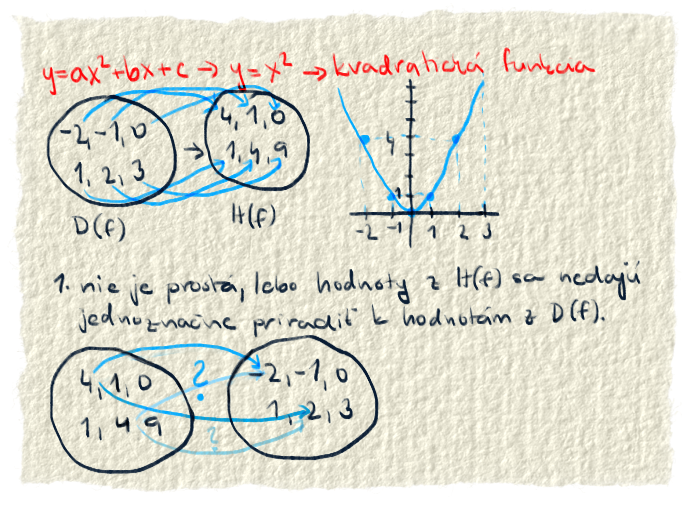 y=ax²+bx+c → y=x² → kvadratická funkcia
-2,-1,0
1, 2, 3
→
4,1,0
1,4,9
D(f)
H(f)
4
1
-2 -1 1 2 3
1. nie je prostá, lebo hodnoty z H(f) sa nedajú
jednoznačne priradiť k hodnotám z D(f).
4,1,0
1,4 9
?
?
-2,-1,0
1, 2, 3